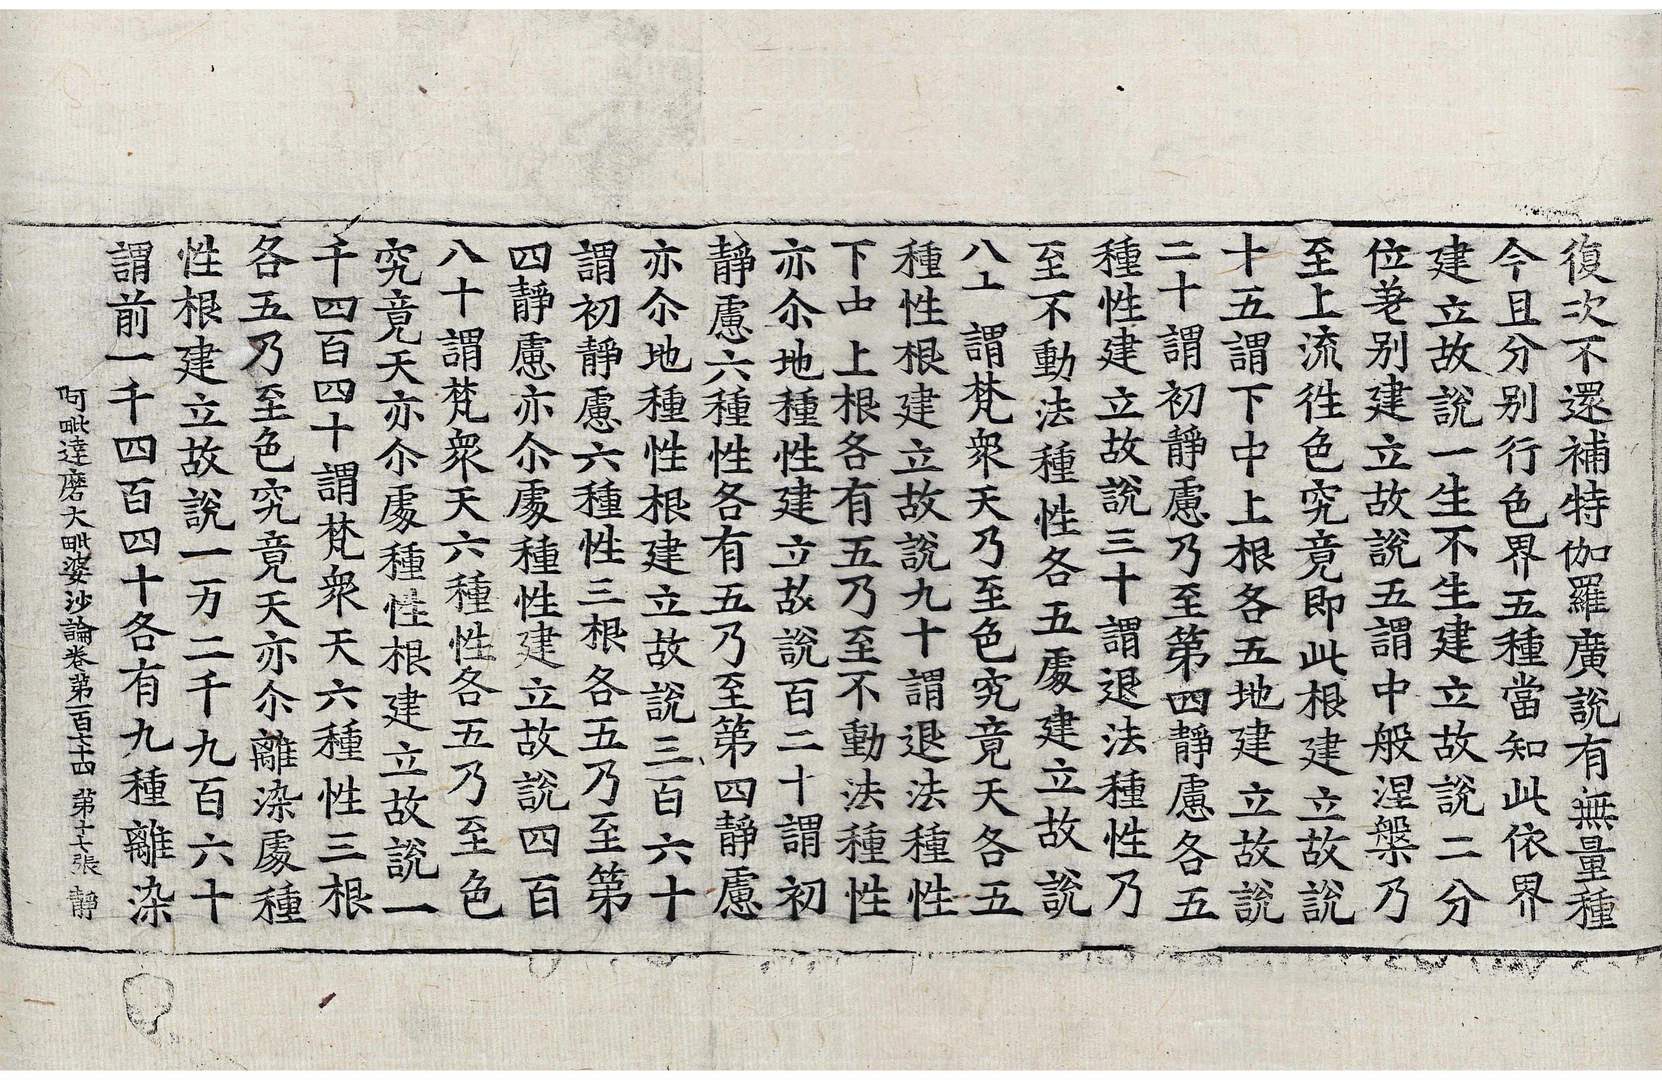 復次不還補特伽羅廣說有無量種
今且分別行色界五種當知此依界
建立故說一生不生建立故說二分
位差別建立故說五謂中般涅槃乃
至上流徃色究竟即此根建立故說
十五謂下中上根各五地建立故說
二十謂初靜慮乃至第四靜慮各五
種性建立故說三十謂退法種性乃
至不動法種性各五處建立故說
八十謂梵衆天乃至色究竟天各五
種性根建立故說九十謂退法種性
下中上根各有五乃至不動法種性
亦尒地種性建立故說百二十謂初
靜慮六種性各有五乃至第四靜慮
亦尒地種性根建立故說三百六十
謂初靜慮六種性三根各五乃至第
四靜慮亦尒處種性建立故說四百
八十謂梵衆天六種性各五乃至色
究竟天亦尒處種性根建立故說一
千四百四十謂梵衆天六種性三根
各五乃至色究竟天亦尒離染處種
性根建立故說一万二千九百六十
謂前一千四百四十各有九種離染
阿毗達磨大毗婆沙論卷第一百七十四 第十七張 靜